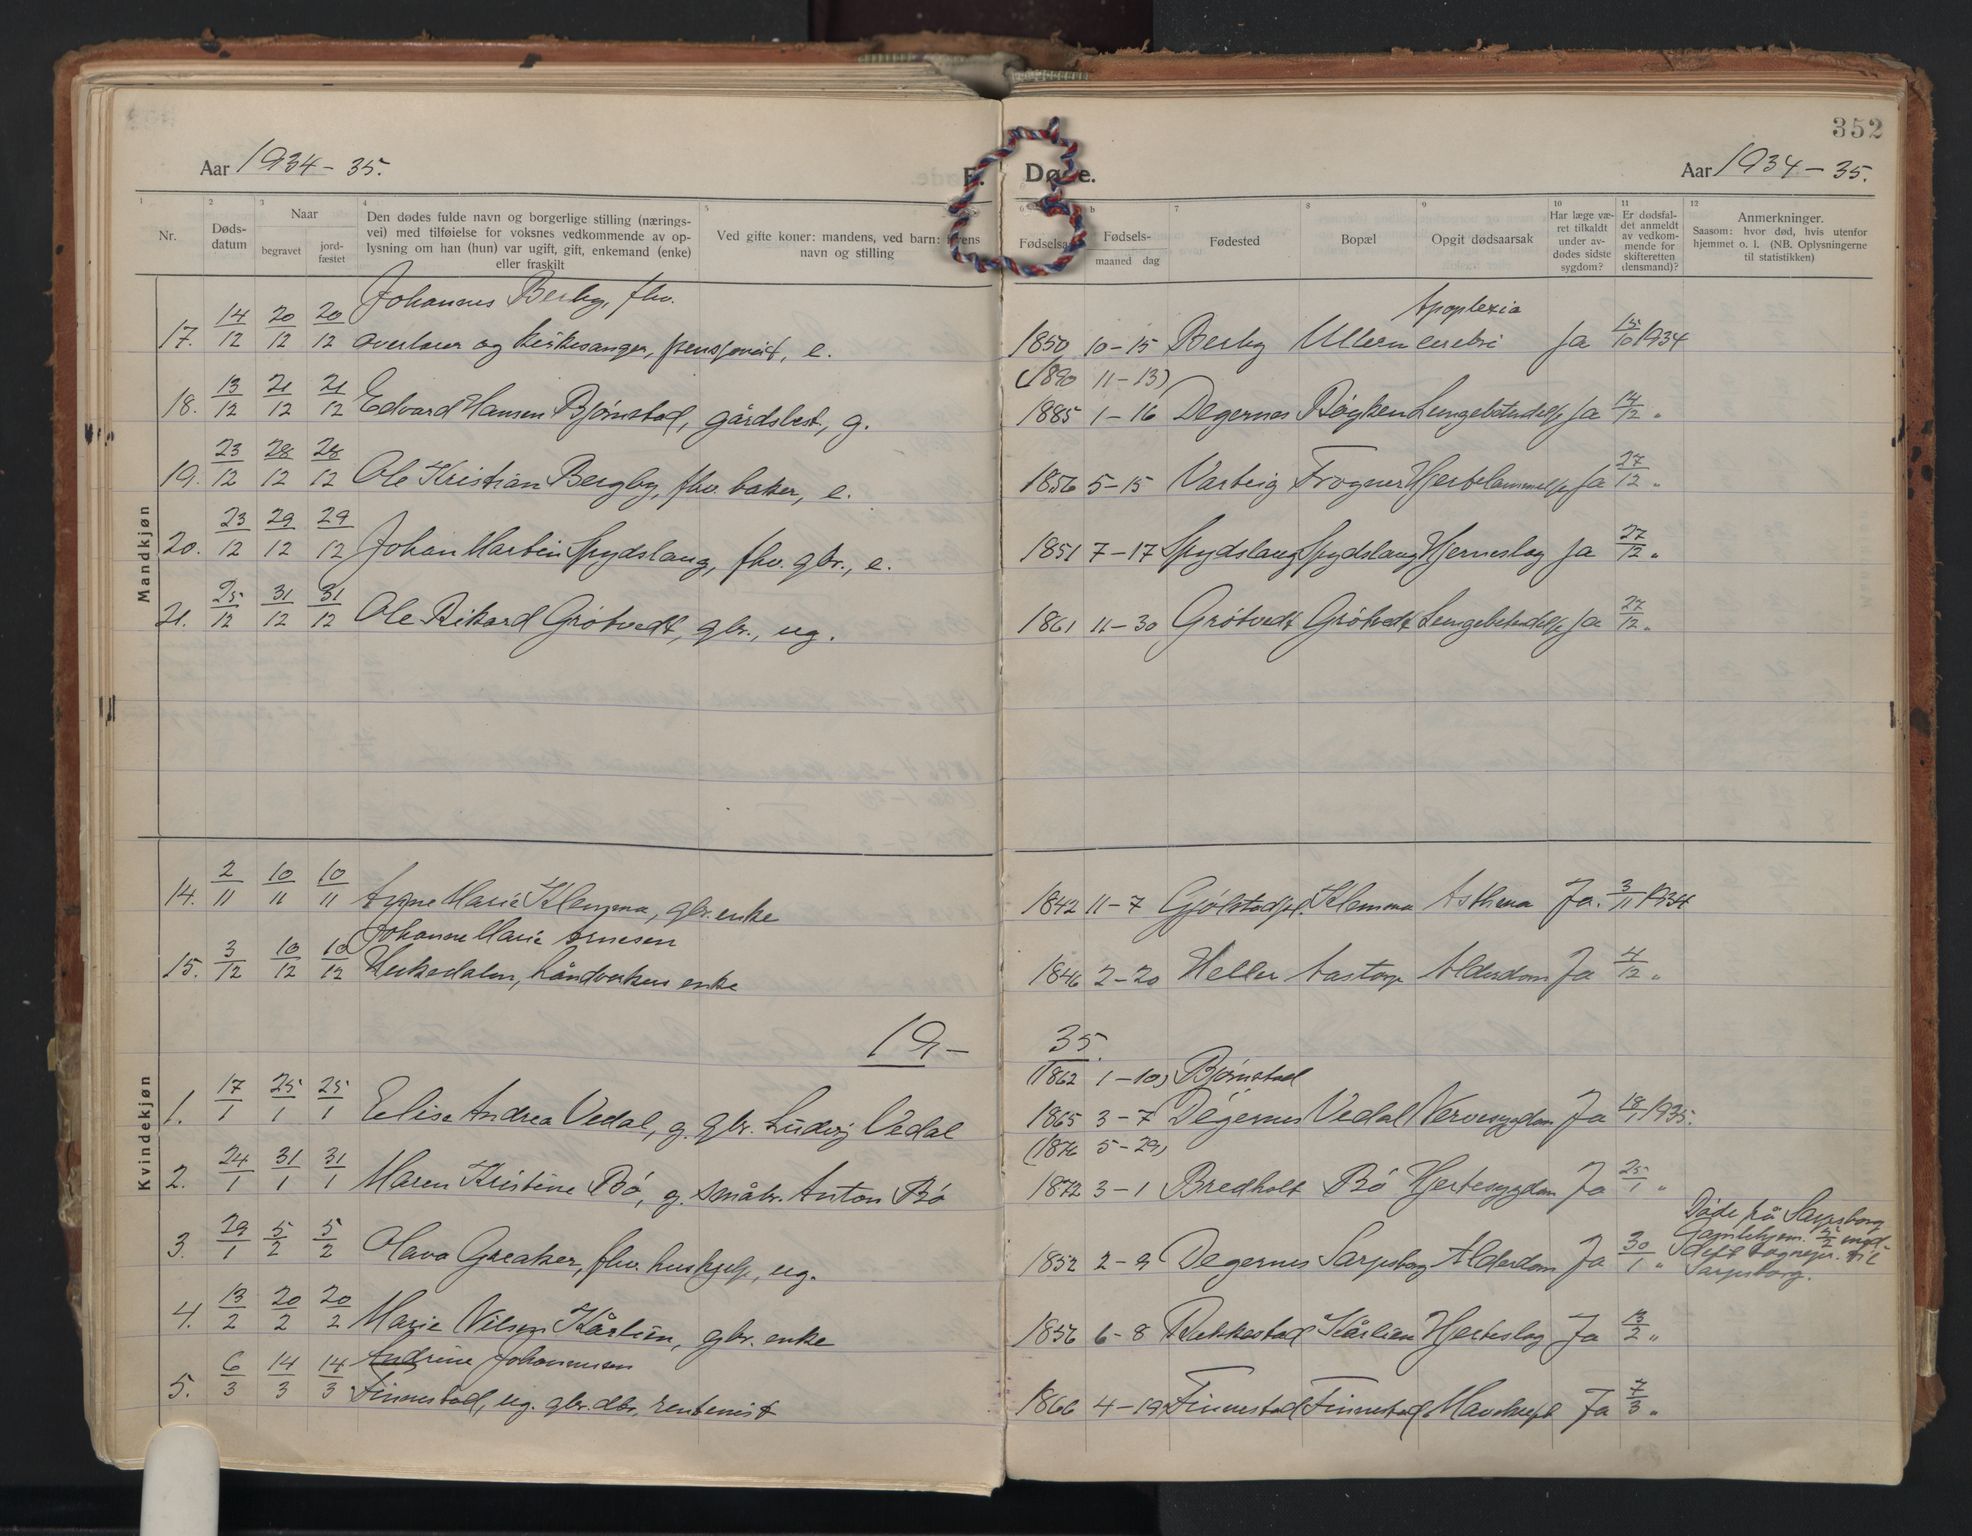 352
Aar 1934-35.
F. Døde.
Aar 1934-35.
1 2 3 4 5 6 b 7 8 9 10 11 12
Nr.
Døds-
datum
Naar
begravet
jord-
fæstet
Den dødes fulde navn og borgerlige stilling (nærings-
vei) med tilføielse for voksnes vedkommende av op-
lysning om han (hun) var ugift, gift, enkemand (enke)
eller fraskilt
Ved gifte koner: mandens, ved barn: farens
navn og stilling
Fødselsaar
Fødsels-
maaned dag
Fødested
Bopæl
Opgit dødsaarsak
Har læge væ-
ret tilkaldt
under av-
dødes sidste
sygdom?
Er dødsfal-
det anmeldt
av vedkom-
mende for
skifteretten
(lensmand)?
Anmerkninger.
Saasom: hvor død, hvis utenfor
hjemmet o. l. (NB. Oplysningerne
til statistikken)
Mandkjøn
Johannes Berby, fhv.
17. 14/12 20/12 20/12 overlærer og kirkesanger, pensjonist, e. 1850 10-15 Berby Ullern Apoplexia cerebri Ja 15/10 1934
(1890 11-13)
18. 13/12 21/12 21/12 Edvard Hansen Bjørnstad, gårdsbest., g. 1885 1-16 Degernes Røyken Lungebetendelse Ja 14/12 "
19. 23/12 28/12 28/12 Ole Kristian Bergby, fhv. baker, e. 1856 5-15 Varteig Frogner Hjertelammelse Ja 27/12 "
20. 23/12 29/12 29/12 Johan Martin Spydslaug, fhv. gbr., e. 1851 7-17 Spydslaug Spydslaug Hjerneslag Ja 27/12 "
21. 25/12 31/12 31/12 Ole Rikard Grøtvedt, gbr., ug. 1861 11-30 Grøtvedt Grøtvedt Lungebetendelse Ja 27/12 "
Kvindekjøn
14. 2/11 10/11 10/11 Agne Marie Klemma, gbr. enke 1842 11-7 Gjølstadpl. Klemma Asthma Ja. 3/11 1934
Johanne Marie Arnesen
15. 3/12 10/12 10/12 Heikedalen, håndverkers enke 1846 2-20 Heller Aastorp Alderdom Ja 4/12 "
19- 35.
(1862 1-10) Bjørnstad
1. 17/1 25/1 25/1 Elise Andrea Vedal, g. gbr. Ludvig Vedal 1865 3-7 Degernes Vedal Nervesygdom Ja 18/1 1935.
(1876 5-29)
2. 24/1 31/1 31/1 Maren Kristine Bø, g. småbr. Anton Bø 1872 3-1 Bredholt Bø Hjertesygdom Ja 25/1 "
3. 29/1 5/2 5/2 Olava Greaker, fhv. hushjelp, ug. 1852 2-9 Degernes Sarpsborg Alderdom Ja 30/1 "
Døde på Sarpsborg
Gamlehjem. 5/2 med-
delt sognepr. til
Sarpsborg.
4. 13/2 20/2 20/2 Marie Nilsen Kårlien, gbr. enke 1856 6-8 Rakkestad Kårlien Hjerteslag Ja 13/2 "
Andrine Johannessen
5. 6/3 14/3 14/3 Finnestad, ug. gbr. dtr., rentenist 1866 4-19 Finnestad Finnestad Mavekreft Ja 7/3 "